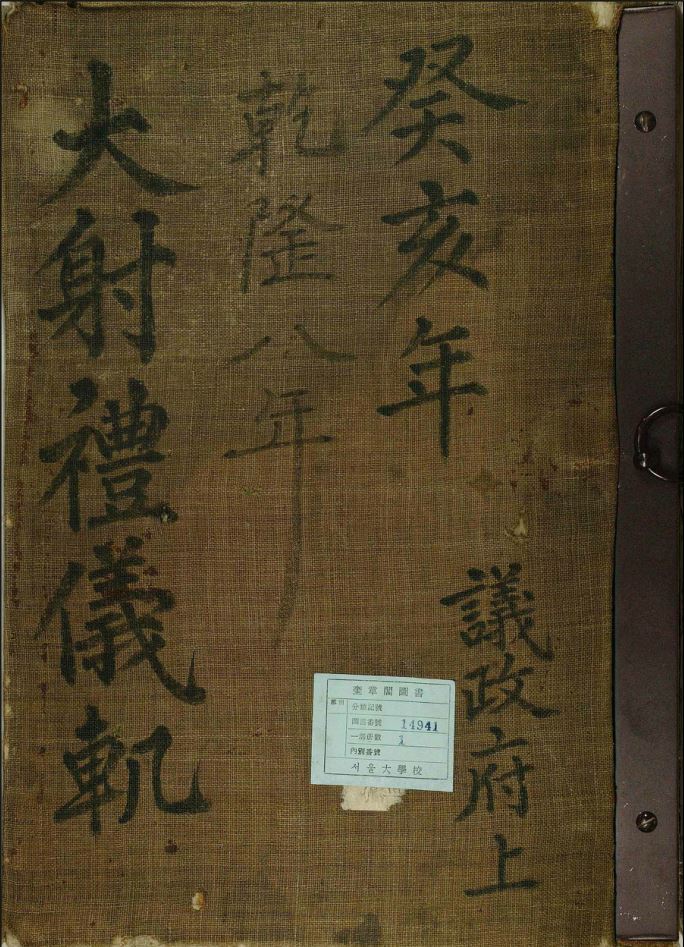 癸亥年
議政府上
乾隆八年
大射禮儀軌
奎章閣圖書
分類記號
圖書番號 14941
一部冊數 1
內別番號
서울大學校